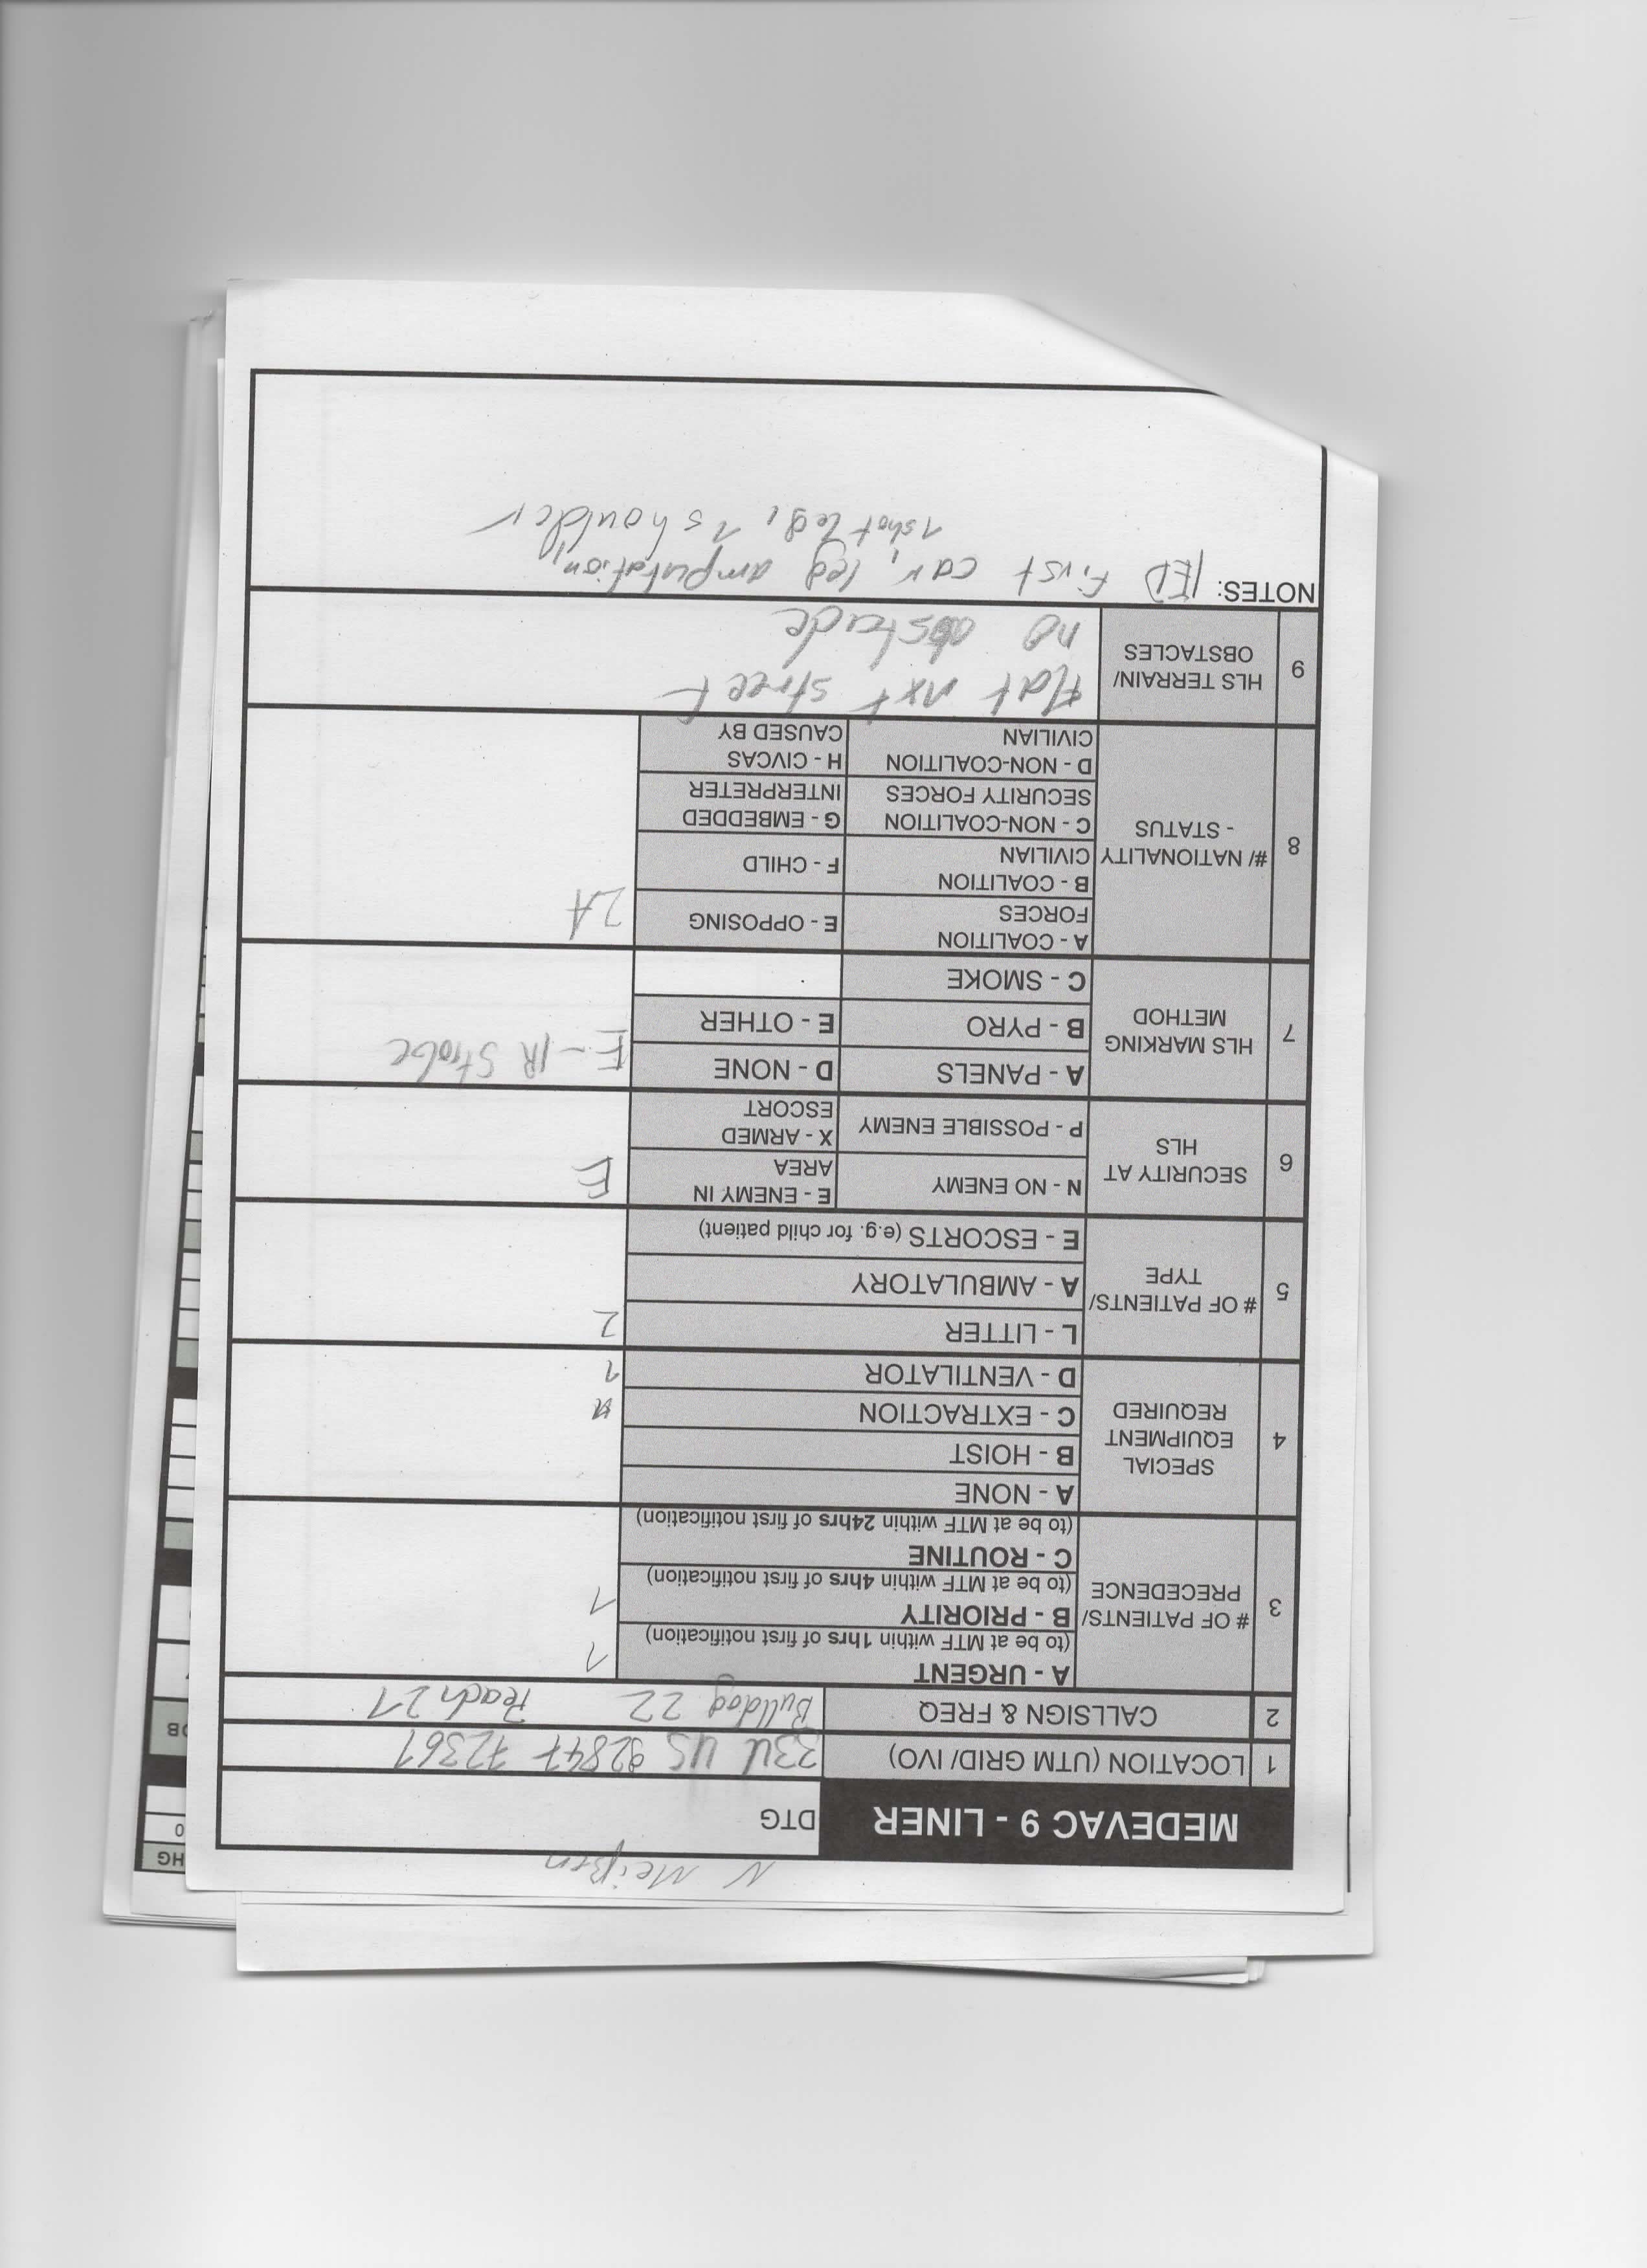 N Meißen
MEDEVAC 9 - LINER
DTG
1 LOCATION (UTM GRID/ IVO) 33U US 92847 72361
2 CALLSIGN & FREQ Bulldog 22 Peach 21
3 # OF PATIENTS/ PRECEDENCE
A - URGENT 1
(to be at MTF within 1hrs of first notification)
B - PRIORITY 1
(to be at MTF within 4hrs of first notification)
C - ROUTINE
(to be at MTF within 24hrs of first notification)
4 SPECIAL EQUIPMENT REQUIRED
A - NONE
B - HOIST
C - EXTRACTION
D - VENTILATOR 1
5 # OF PATIENTS/ TYPE
L - LITTER 2
A - AMBULATORY
E - ESCORTS (e.g. for child patient)
6 SECURITY AT HLS
N - NO ENEMY
E - ENEMY IN AREA
P - POSSIBLE ENEMY
X - ARMED ESCORT
E
7 HLS MARKING METHOD
A - PANELS
D - NONE
B - PYRO
E - OTHER
C - SMOKE
E - IR Strobe
8 #/ NATIONALITY - STATUS
A - COALITION FORCES
E - OPPOSING
B - COALITION CIVILIAN
F - CHILD
C - NON-COALITION SECURITY FORCES
G - EMBEDDED INTERPRETER
D - NON-COALITION CIVILIAN
H - CIVCAS CAUSED BY
2A
9 HLS TERRAIN/ OBSTACLES
Flat nxt street
no obstacle
NOTES: IED first car, leg amputation,
1 shot leg, 1 shoulder
HG
0
OB